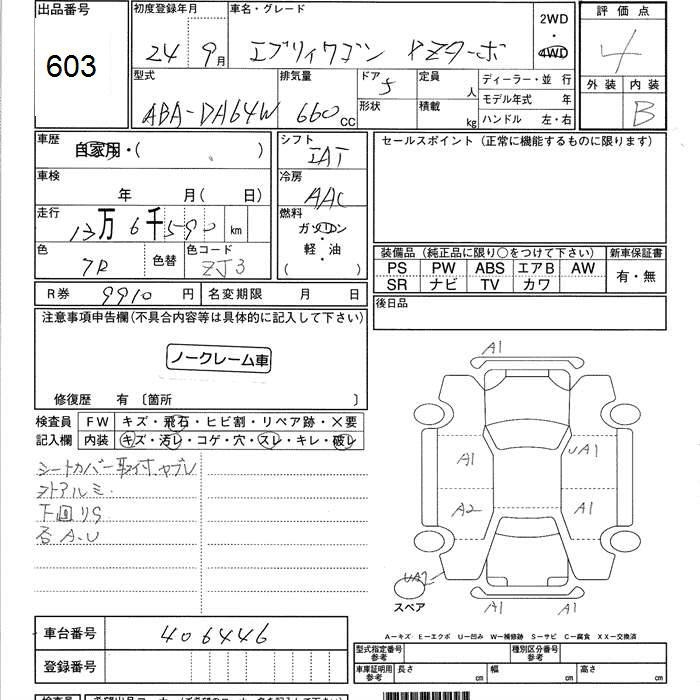 出品番号
603
初度登録年月
24 9月
車名・グレード
エブリイワゴン PZターボ
2WD
・
4WD
評価点
4
外装 内装
B
型式
ABA-DA64W
排気量
660cc
ドア 5
形状
定員 人
積載 kg
ディーラー・並行
モデル年式 年
ハンドル 左・右
車歴
自家用・( )
車検
年 月( 日)
走行
13万6千590 km
色
色替
色コード
ZJ3
シフト
IAT
冷房
AAC
燃料
ガソリン
・
軽・油
( )
セールスポイント(正常に機能するものに限ります)
装備品(純正品に限り○をつけて下さい)
新車保証書
PS PW ABS エアB AW
SR ナビ TV カワ
有・無
R券 9910円
名変期限 月 日
後日品
注意事項申告欄(不具合内容等は具体的に記入して下さい)
ノークレーム車
修復歴 有〔箇所 〕
検査員
記入欄
FW キズ・飛石・ヒビ割・リペア跡・×要
内装 キズ・汚レ・コゲ・穴・スレ・キレ・破レ
シートカバー取付.ヤブレ
ソトアルミ.
下回リS
各A.U
A1
A1
UA1
A2
A1
UA2
A1
A1
スペア
車台番号
406446
登録番号
A-キズ E-エクボ U-凹み W-補修跡 S-サビ C-腐食 XX-交換済
型式指定番号
参考
種別区分番号
参考
車庫証明用
参考
長さ cm
幅 cm
高さ cm